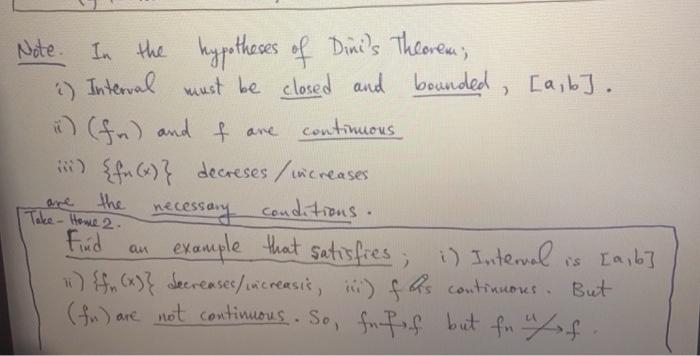 Note. In the hypotheses of Dini's Theorem;
i) Interval must be closed and bounded, [a,b].
ii) (fn) and f are continuous
iii) {fn(x)} decreses/increases
are the necessary conditions.
Take-Home 2.
Find an example that satisfies; i) Interval is [a,b]
ii) {fn(x)} decreases/increasis, iii) f is continuous. But
(fn) are not continuous. So, fn P→ f but fn u↛ f.